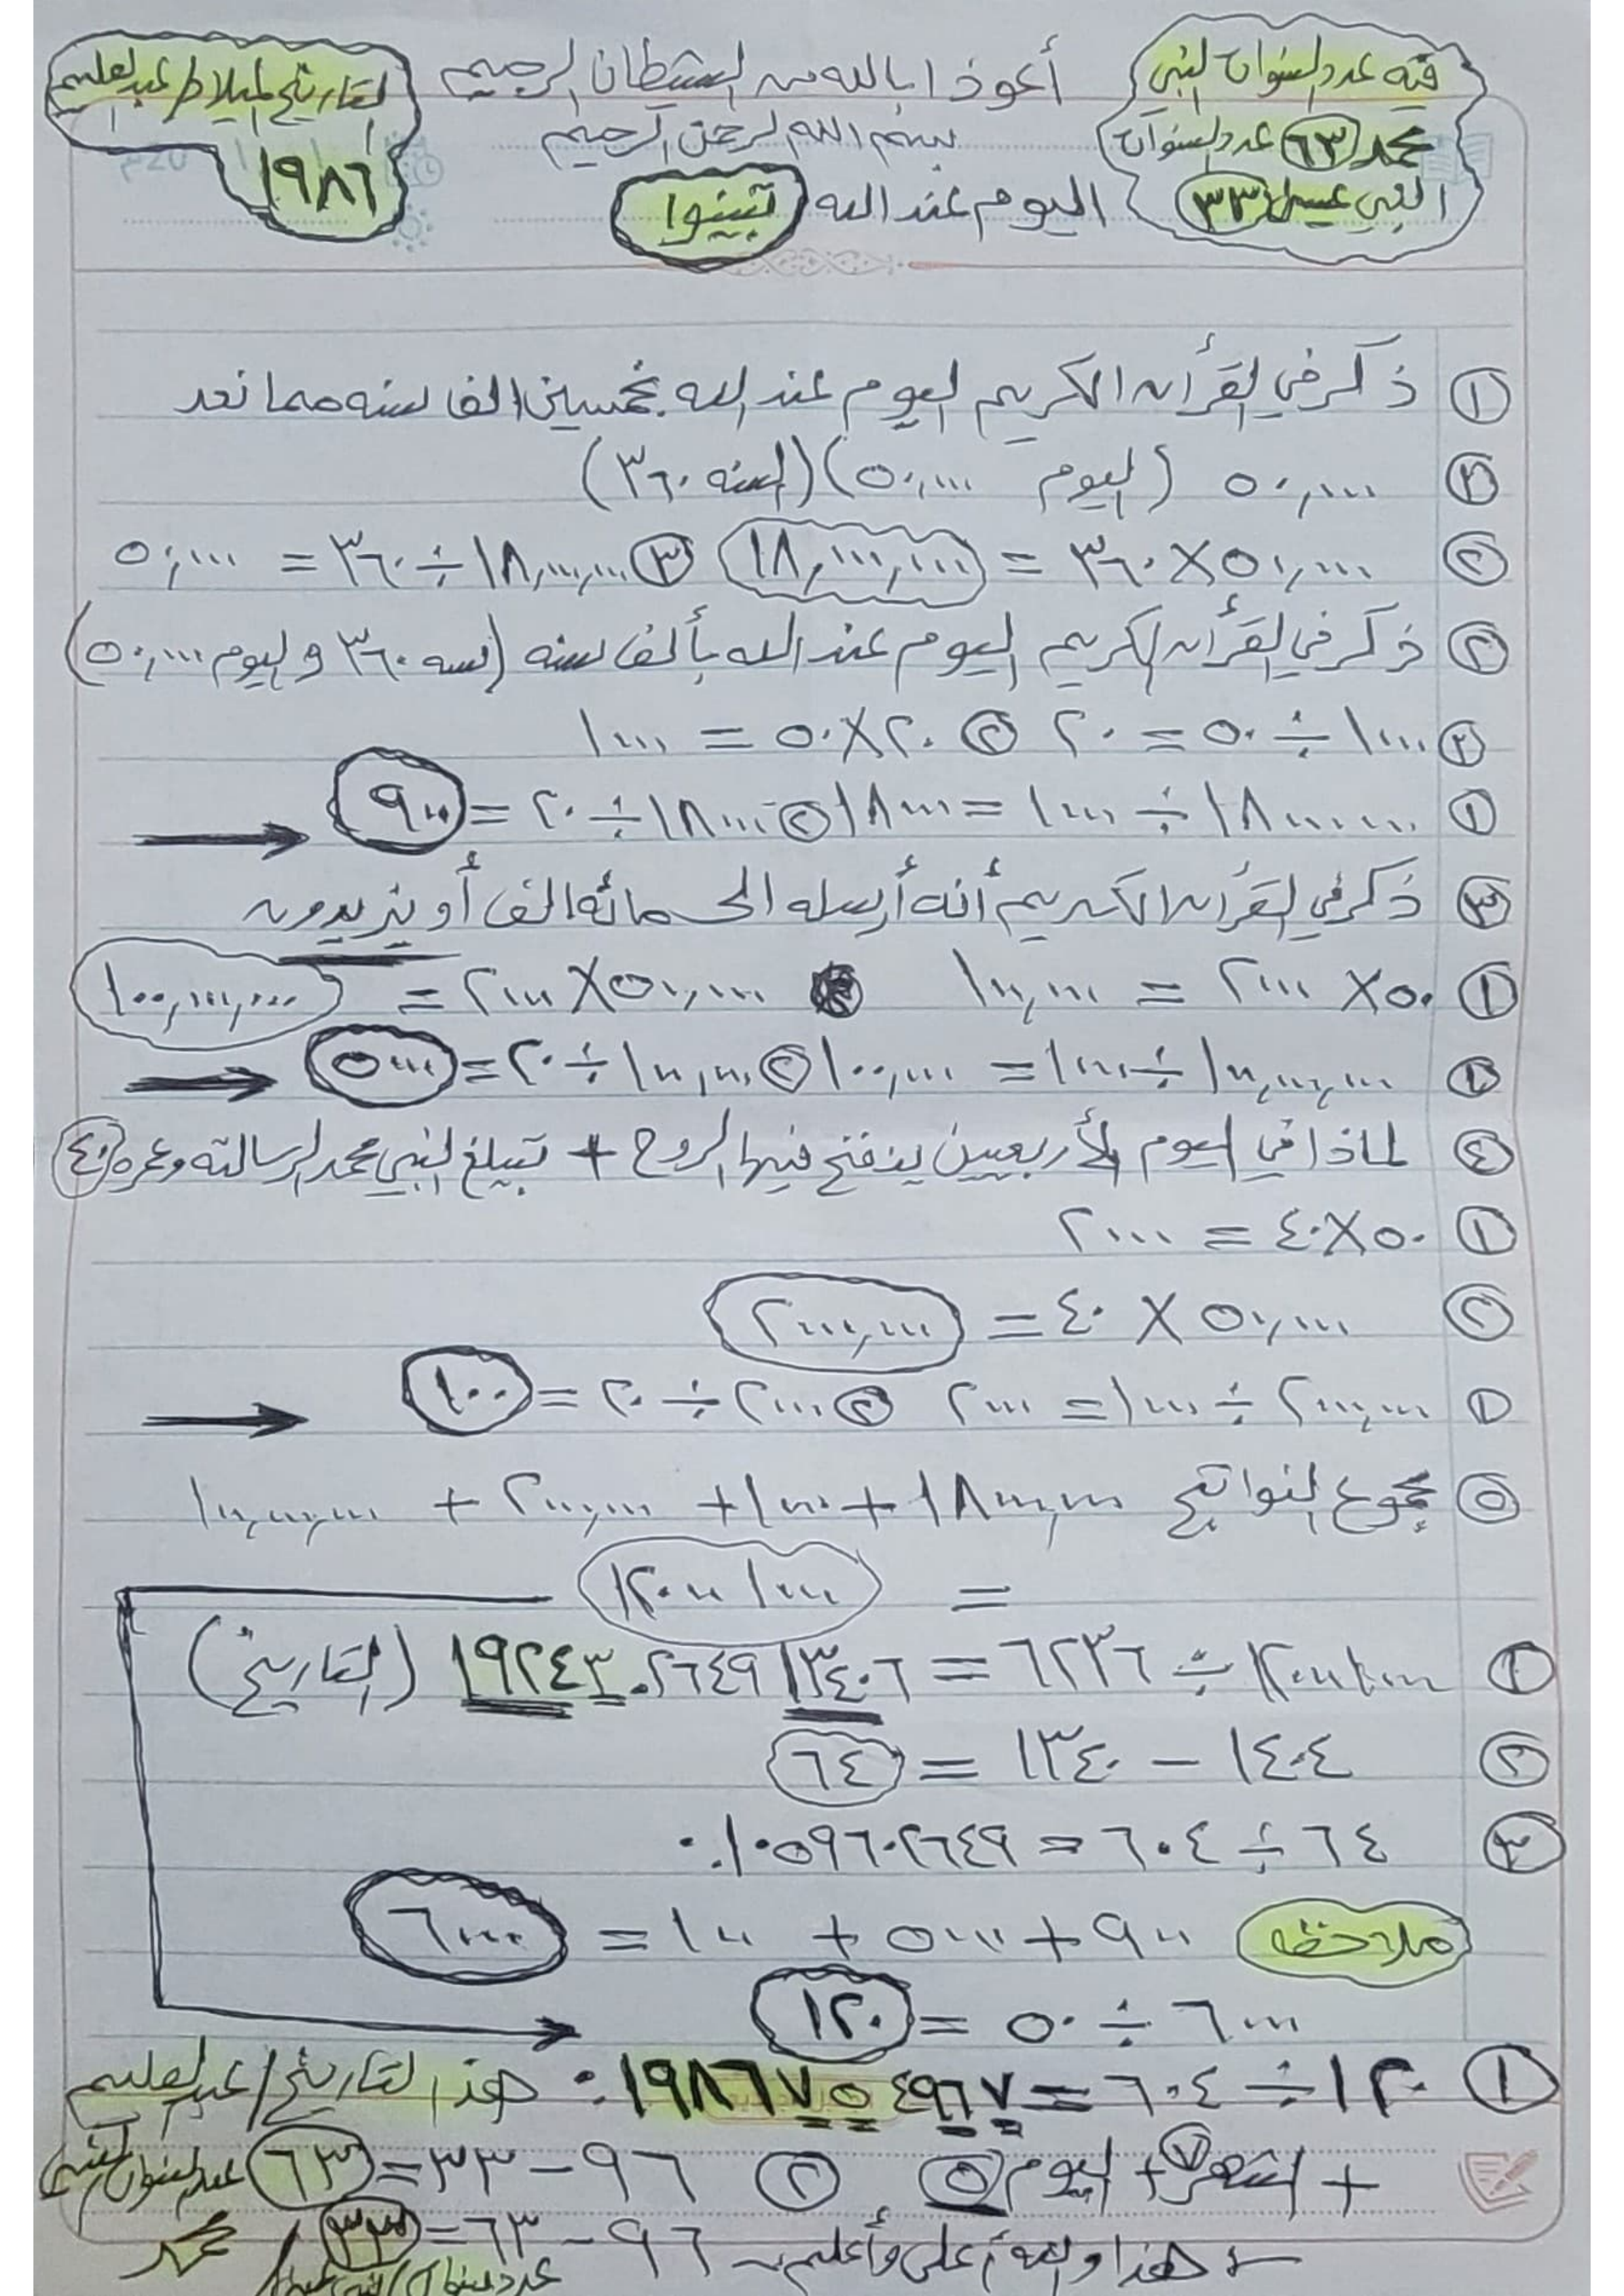 فيه عدد السنوات النبي
محمد ٦٣ عدد السنوات
النبي عيسى ٣٣
أعوذ بالله من الشيطان الرجيم
بسم الله الرحمن الرحيم
اليوم عند الله تبينوا
التاريخ الميلاد / عبد العليم
١٩٨٦
١ ذكر في القرأن الكريم اليوم عند الله بخمسين الف سنه مما نعد
٢ ٥٠,٠٠٠ (اليوم ٥٠,٠٠٠) (السنه ٣٦٠)
٢ ٥٠,٠٠٠ × ٣٦٠ = ١٨,٠٠٠,٠٠٠ ٣ ١٨,٠٠٠,٠٠٠ ÷ ٣٦٠ = ٥٠,٠٠٠
٢ ذكر في القرأن الكريم اليوم عند الله بألف سنه (سنه ٣٦٠ و اليوم ٥٠,٠٠٠)
٢ ١٠٠٠ ÷ ٥٠ = ٢٠ ٢ ٢٠ × ٥٠ = ١٠٠٠
١ ١٨٠٠٠٠٠٠ ÷ ١٠٠٠ = ١٨٠٠٠ ٢ ١٨٠٠٠ ÷ ٢٠ = ٩٠٠
٣ ذكر في القرأن الكريم أنه أرسله الى مائه الف أو يزيدون
١ ٥٠ × ٢٠٠٠ = ١٠٠,٠٠٠ ٥٠,٠٠٠ × ٢٠٠٠ = ١٠٠,٠٠٠,٠٠٠
٢ ١٠٠,٠٠٠,٠٠٠ ÷ ١٠٠٠ = ١٠٠,٠٠٠ ٢ ١٠٠,٠٠٠ ÷ ٢٠ = ٥٠٠٠
٤ لماذا في اليوم الأربعين ينفخ فيها الروح + تبيلغ النبي محمد الرسالته وعمره ٤٠
١ ٥٠ × ٤٠ = ٢٠٠٠
٢ ٥٠,٠٠٠ × ٤٠ = ٢٠٠٠,٠٠٠
١ ٢٠٠٠,٠٠٠ ÷ ١٠٠٠ = ٢٠٠٠ ٢ ٢٠٠٠ ÷ ٢٠ = ١٠٠
٥ مجموع النواتج ١٨٠٠٠,٠٠٠ + ١٠٠٠ + ٢٠٠٠,٠٠٠ + ١٠٠,٠٠٠,٠٠٠
= ١٢٠٠٠١٠٠٠
١ ١٢٠٠٠١٠٠٠ ÷ ٦٢٣٦ = ١٩٢٤٣.٢٦٤٩١٣٤٠٦ (التاريخ)
٢ ١٤٠٤ - ١٣٤٠ = ٦٤
٣ ٦٤ ÷ ٦٠٤ = ٠.١٠٥٩٦٠٢٦٤٩
ملاحظه ٩٠٠ + ٥٠٠٠ + ١٠٠ = ٦٠٠٠
٦٠٠٠ ÷ ٥٠ = ١٢٠
١ ١٢٠ ÷ ٦٠٤ = ٠.١٩٨٦٧٥٤٩٦٧ هذا التاريخ / عبد العليم
+ الشهر ٧ + اليوم ٥ ٢ ٩٦ - ٣٣ = ٦٣ عدد السنوات النبي
محمد
هذا والله أعلى وأعلم ٩٦ - ٦٣ = ٣٣ /